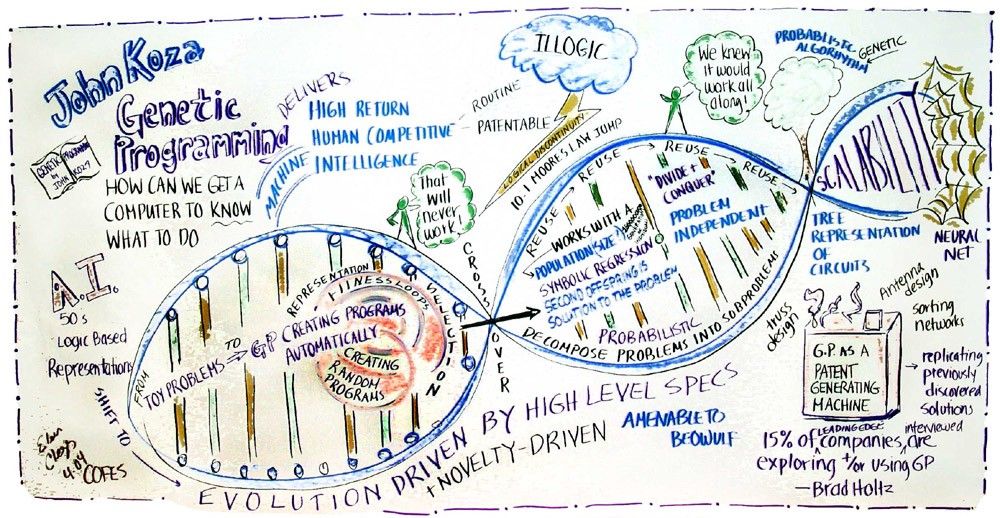 John Koza
Genetic
Programming
GENETIC PROGRAMMING
JOHN KOZA
HOW CAN WE GET A
COMPUTER TO KNOW
WHAT TO DO
A.I.
50's
Logic Based
Representations
SHIFT TO
COFES
4.04
DELIVERS
HIGH RETURN
HUMAN COMPETITIVE
MACHINE INTELLIGENCE
ROUTINE
PATENTABLE
ILLOGIC
LOGICAL DISCONTINUITY
10-1 MOORES LAW JUMP
That
will
never
work!
FROM
TOY PROBLEMS → TO
GP CREATING PROGRAMS
AUTOMATICALLY
REPRESENTATION
FITNESS LOOP
SELECTION
CREATING
RANDOM
PROGRAMS
CROSSOVER
REUSE → REUSE → REUSE → REUSE
WORKS WITH A
POPULATION (SIZE↑)
SYMBOLIC REGRESSION
SECOND OFFSPRING IS
SOLUTION TO THE PROBLEM
"DIVIDE +
CONQUER"
PROBLEM
INDEPENDENT
PROBABILISTIC
DECOMPOSE PROBLEMS INTO SUBPROBLEMS
We knew
it would
work all
along!
PROBABLISTIC
ALGORHYTHM
GENETIC
SCALABILITY
NEURAL
NET
TREE
REPRESENTATION
OF
CIRCUITS
truss
design
Antenna
design
sorting
networks
G.P. AS A
PATENT
GENERATING
MACHINE
→ replicating
previously
discovered
solutions
EVOLUTION DRIVEN BY HIGH LEVEL SPECS
+ NOVELTY-DRIVEN
AMENABLE TO
BEOWULF
LEADING EDGE
interviewed
15% of companies are
exploring +/or using GP
—Brad Holtz